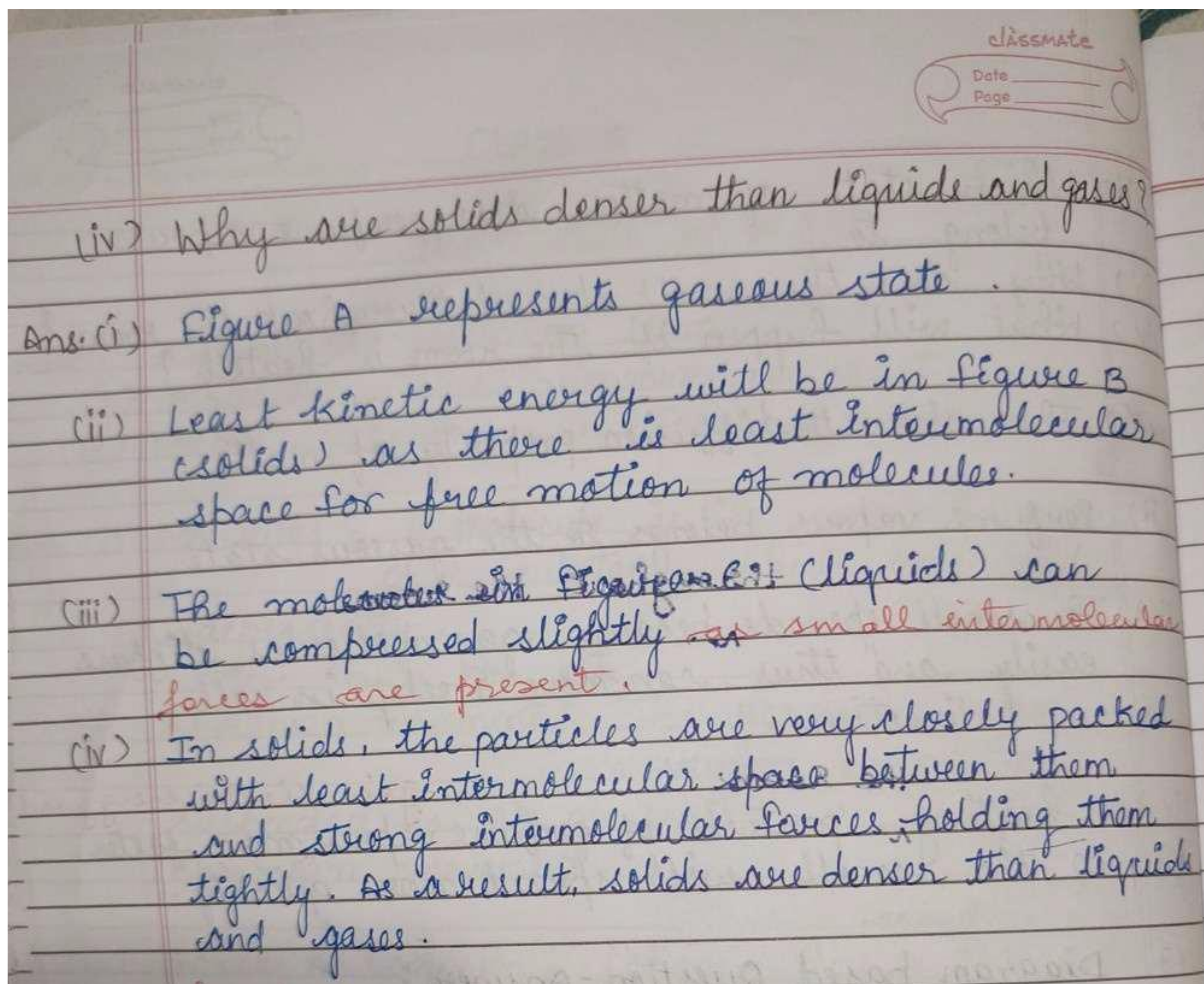 classmate
Date
Page
(iv) Why are solids denser than liquids and gases?
Ans. (i) Figure A represents gaseous state.
(ii) Least kinetic energy will be in figure B
(solids) as there is least intermolecular
space for free motion of molecules.
(iii) The (liquids) can
be compressed slightly as small intermolecular
forces are present.
(iv) In solids, the particles are very closely packed
with least intermolecular space between them
and strong intermolecular forces holding them
tightly. As a result, solids are denser than liquids
and gases.